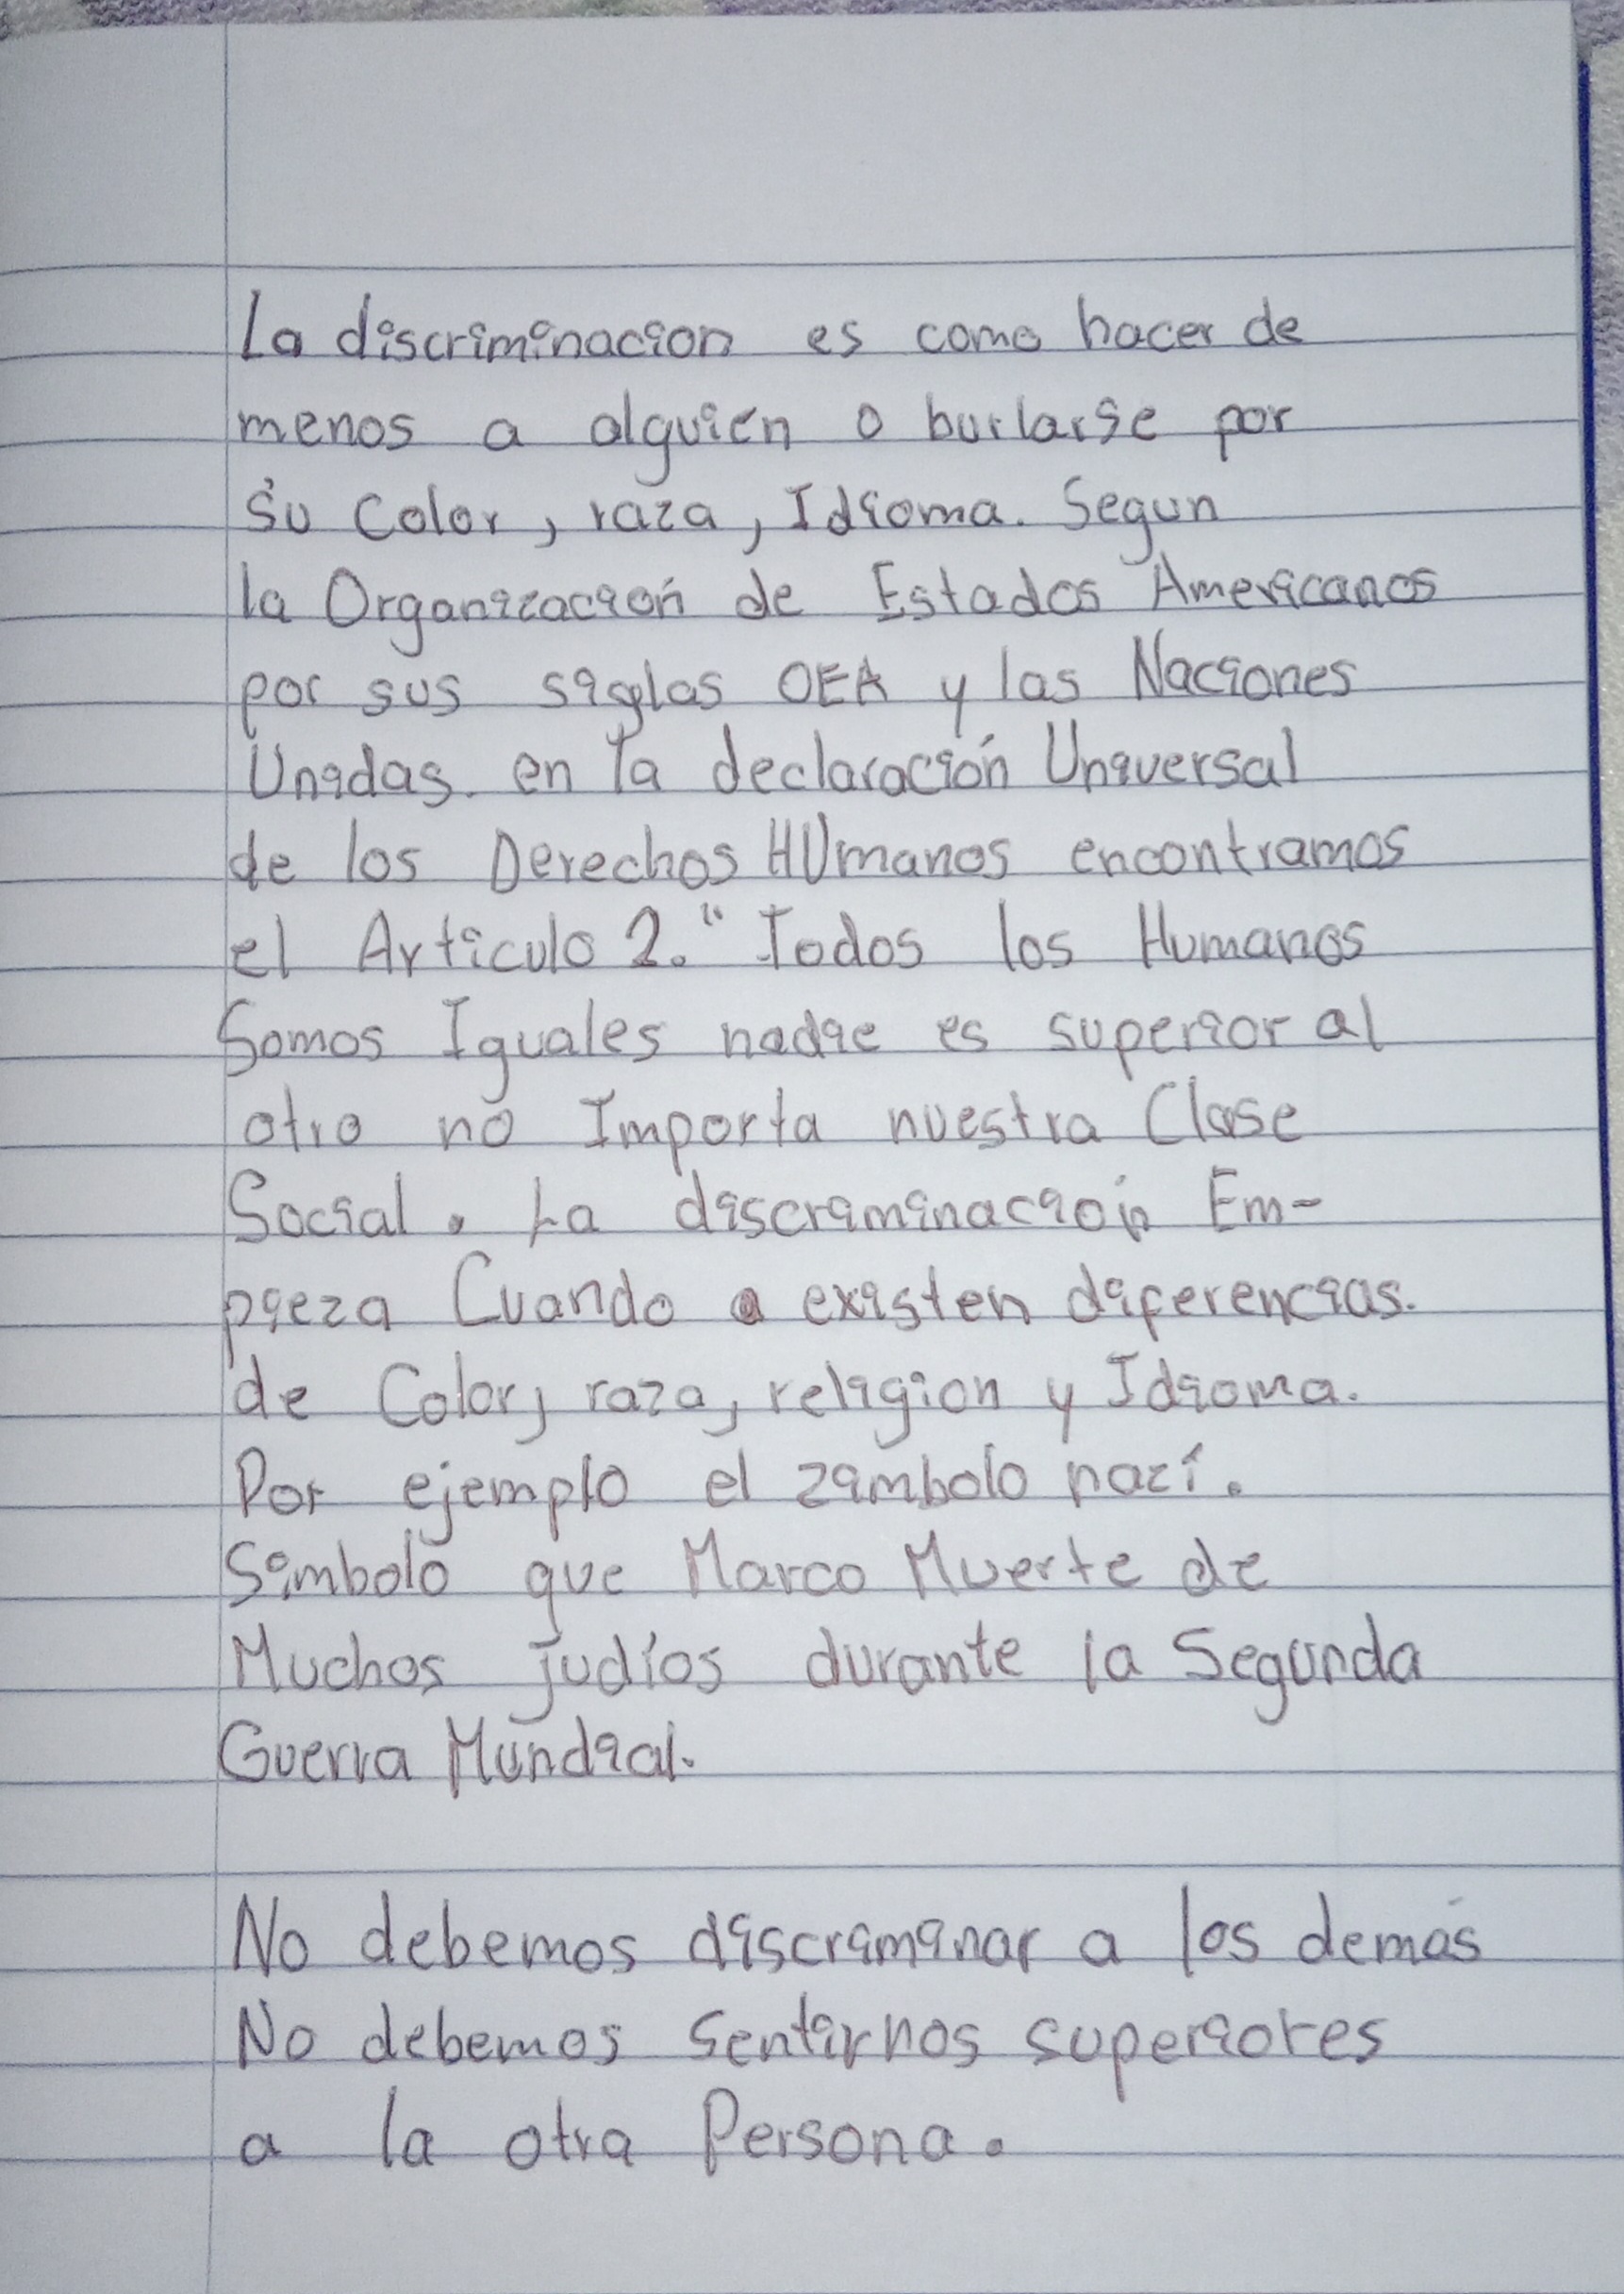 La discriminacion es como hacer de
menos a alguien o burlarse por
su Color, raza, Idioma. Segun
la Organización de Estados Americanos
por sus siglas OEA y las Naciones
Unidas. en la declaración Universal
de los Derechos HUmanos encontramos
el Articulo 2. "Todos los Humanos
Somos Iguales nadie es superior al
otro no Importa nuestra Clase
Social. La discriminación Em-
pieza Cuando existen diferencias.
de Color, raza, religion y Idioma.
Por ejemplo el zimbolo nazí.
Simbolo que Marco Muerte de
Muchos judíos durante la Segunda
Guerra Mundial.
No debemos discriminar a los demás
No debemos Sentirnos superiores
a la otra Persona.